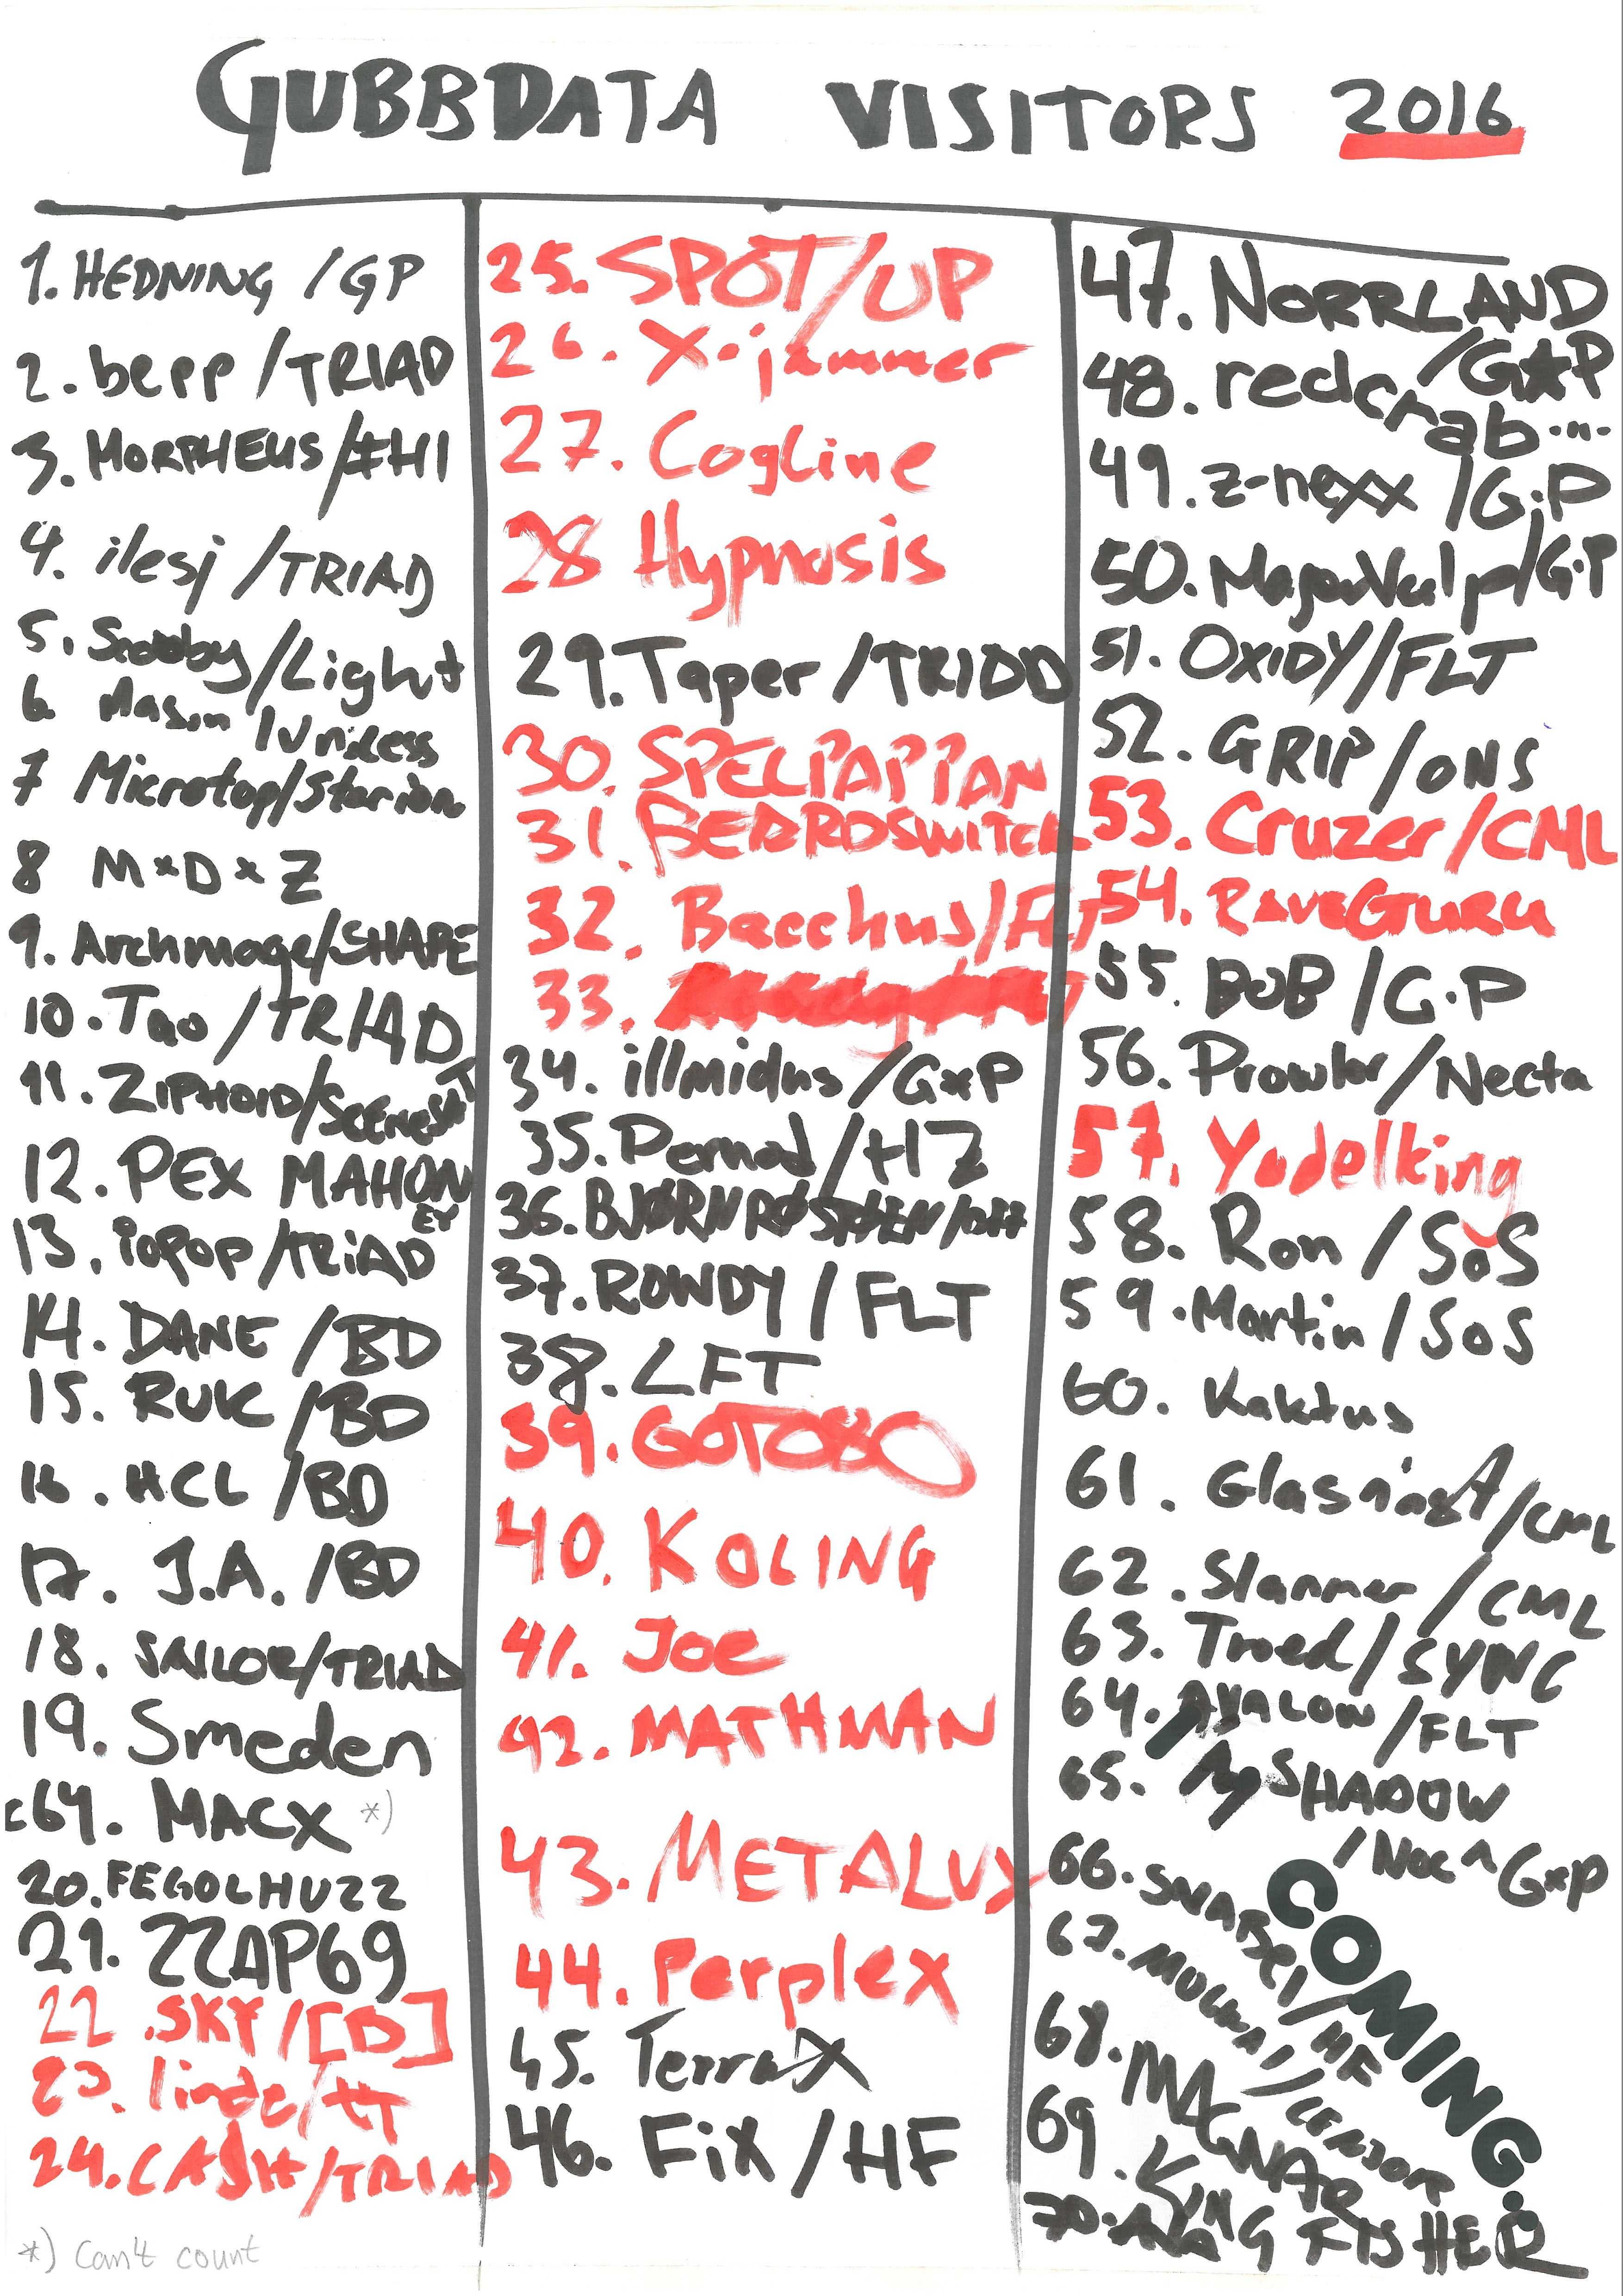 GUBBDATA VISITORS 2016
1. HEDNING /GP
2. bepp /TRIAD
3. MORPHEUS/#HI
4. ilesj /TRIAD
5. /Light
6.
7 Microtop/
8 M×D×Z
9. Archmage/SHAPE
10. Tao /TRIAD
11. ZIPHOID/SCENESAT
12. PEX MAHONEY
13. iopop /TRiAD
14. DANE /BD
15. RUK /BD
16. HCL /BD
17. J.A. /BD
18. SAILOR/TRIAD
19. Smeden
c64. MACX *)
20. FEGOLHUZZ
21. ZZAP69
22 .SKY /[D]
23. linde/tt
24. CASH/TRIAD
*) Can't count
25. SPOT/UP
26. X-jammer
27. Cogline
28 Hypnosis
29. Taper /TRIAD
30. SPELPAPPAN
31. BEDROSWITCH
32. Bacchus/FLT
33.
34. illmidus /G×P
35. Pernod /HZ
36. BJØRN RØSTØEN/
37. ROWDY / FLT
38. LFT
39. GOTO80
40. KOLING
41. Joe
42. MATHMAN
43. METALUX
44. Perplex
45. TerraX
46. FiX /HF
47. NORRLAND
/G★P
48. redcrab...
49. z-nexx /G·P
50. MagerValp/G·P
51. OXIDY/FLT
52. GRIP/ONS
53. Cruzer/CML
54. RAVEGURU
55. BOB /G·P
56. Prowler /Necta
57. Yodelking
58. Ron / SoS
59. Martin / SoS
60. Kaktus
61. /CML
62. Slammer /CML
63. Troed/SYNC
64. /FLT
65. SHADOW
/Noc^G×P
66. SNABEL/HF
67. /CENSOR
68. MAGNAR
69. KING FISHER
70.
COMING.